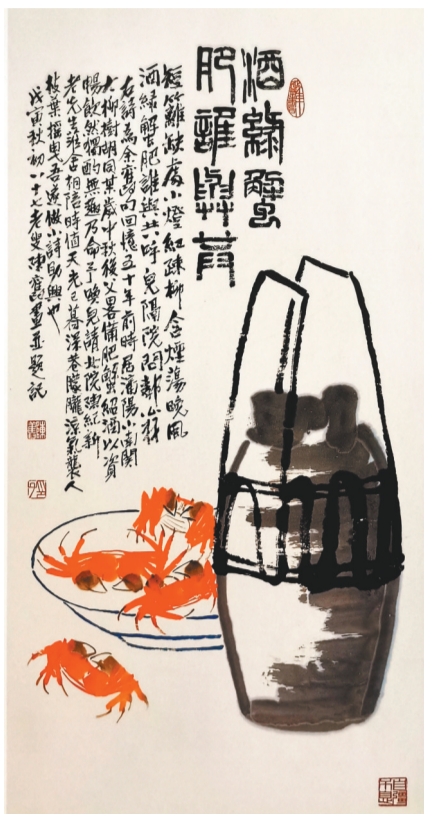 酒綠蟹
肥誰與共
短籬缺處小燈紅疎柳含煙蕩晚風
酒綠蟹肥誰與共呼兒隔院問鄰公
右詩為余回憶五十年前時居瀋陽小南關
大柳樹胡同某歲中秋後父畧備肥蟹紹酒以資
暢飲然獨酌無趣乃命予喚兒請北院陳紅新
老先生舍相陪時值天光已暮深巷朦朧涼氣襲人
枝葉摇曳吾遂做小詩助興也
戊寅秋初八十七老叟陳畫並題記